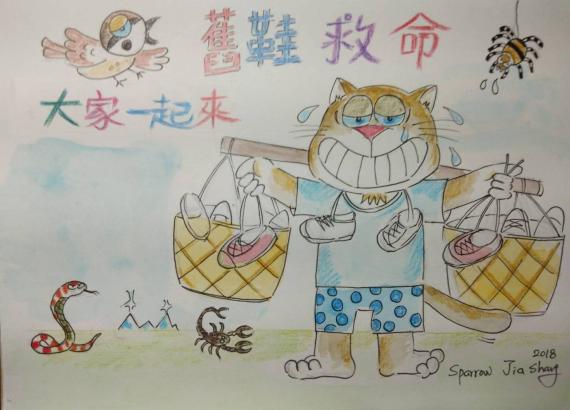 舊鞋救命
大家一起來
2018
Sparrow Jia Shay